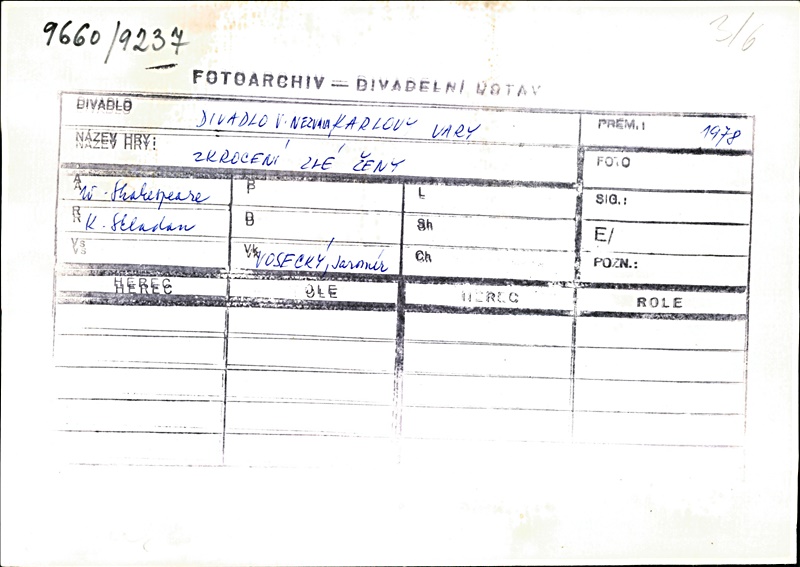 9660/9237
3/6
FOTOARCHIV — DIVADELNÍ ÚSTAV
DIVADLO DIVADLO V. NEZVALA KARLOVY VARY PREM.: 1978
NÁZEV HRY: ZKROCENÍ ZLÉ ŽENY FOTO
A W. Shakespeare P L SIG.:
R K. Skladan D Sh E/
Vs Vk VOSECKÝ, Jaromír Ch POZN.:
HEREC OLE HEREC ROLE